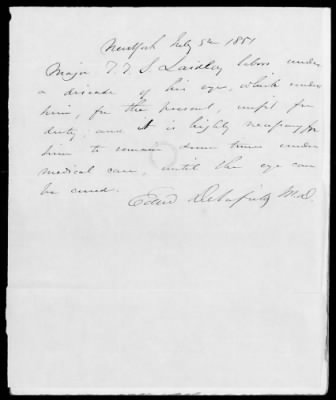 New York July 5th 1851
Major T. T. S Laidley labors under
a disease of his eye, which renders
him, for the present, unfit for
duty; and it is highly necessary for
him to remain some time under
medical care, until the eye can
be cured.
Edwd Delafield M.D.